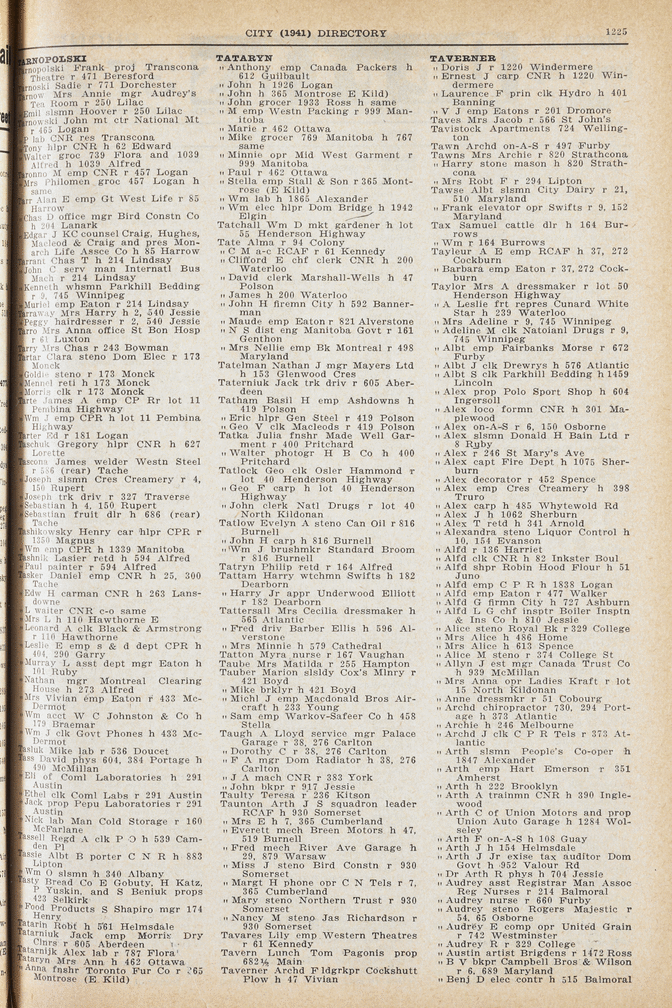 CITY (1941) DIRECTORY 1225
TARNOPOLSKI
Tarnopolski Frank proj Transcona
Theatre r 471 Beresford
Tarnoski Sadie r 771 Dorchester
Tarnow Mrs Annie mgr Audrey's
Tea Room r 250 Lilac
" Emil slsmn Hoover r 250 Lilac
Tarnowski John mt ctr National Mt
r 465 Logan
" P lab CNR res Transcona
" Tony hlpr CNR h 62 Edward
" Walter groc 739 Flora and 1039
Alfred h 1039 Alfred
Taronno M emp CNR r 457 Logan
" Mrs Philomen groc 457 Logan h
same
Tarr Alan E emp Gt West Life r 85
Harrow
" Chas D office mgr Bird Constn Co
h 204 Lanark
" Edgar J KC counsel Craig, Hughes,
Macleod & Craig and pres Mon-
arch Life Assce Co h 85 Harrow
Tarrant Chas T h 214 Lindsay
" John C serv man Internatl Bus
Mach r 214 Lindsay
" Kenneth whsmn Parkhill Bedding
r 9, 745 Winnipeg
" Muriel emp Eaton r 214 Lindsay
Tarraway Mrs Harry h 2, 540 Jessie
" Peggy hairdresser r 2, 540 Jessie
Tarro Mrs Anna office St Bon Hosp
r 61 Luxton
Tarry Mrs Chas r 243 Bowman
Tartar Clara steno Dom Elec r 173
Monck
" Goldie steno r 173 Monck
" Mennel retl h 173 Monck
" Morris clk r 173 Monck
Tarte James A emp CP Rr lot 11
Pembina Highway
" Wm J emp CPR h lot 11 Pembina
Highway
Tarter Ed r 181 Logan
Taschuk Gregory hlpr CNR h 627
Lorette
Tascona James welder Westn Steel
r 586 (rear) Tache
" Joseph slsmn Cres Creamery r 4,
150 Rupert
" Joseph trk driv r 327 Traverse
" Sebastian h 4, 150 Rupert
" Sebastian fruit dlr h 686 (rear)
Tache
Tashikowsky Henry car hlpr CPR r
1350 Magnus
" Wm emp CPR h 1339 Manitoba
Tashnik Lasier retd h 594 Alfred
" Paul painter r 594 Alfred
Tasker Daniel emp CNR h 25, 300
Tache
" Edw H carman CNR h 263 Lans-
downe
" L waiter CNR c-o same
" Mrs L h 110 Hawthorne E
" Leonard A clk Black & Armstrong
r 110 Hawthorne
" Leslie E emp s & d dept CPR h
404, 290 Garry
" Murray L asst dept mgr Eaton h
101 Ruby
" Nathan mgr Montreal Clearing
House h 273 Alfred
" Mrs Vivian emp Eaton r 433 Mc-
Dermot
" Wm acct W C Johnston & Co h
179 Braemar
" Wm J clk Govt Phones h 433 Mc-
Dermot
Tasluk Mike lab r 536 Doucet
Tass David phys 604, 384 Portage h
490 McMillan
" Eli of Coml Laboratories h 291
Austin
" Ethel clk Coml Labs r 291 Austin
" Jack prop Pepu Laboratories r 291
Austin
" Nick lab Man Cold Storage r 160
McFarlane
Tassell Regd A clk P O h 539 Cam-
den Pl
Tassie Albt B porter C N R h 883
Lipton
" Wm O slsmn h 340 Albany
Tasty Bread Co E Gobuty, H Katz,
P Yuskin, and S Beniuk props
423 Selkirk
" Food Products S Shapiro mgr 174
Henry
Tatarin Robt h 561 Helmsdale
Tatarniuk Jack emp Morris Dry
Clnrs r 605 Aberdeen
Tatarnijk Alex lab r 787 Flora
Tataryn Mrs Ann h 462 Ottawa
" Anna fnshr Toronto Fur Co r 365
Montrose (E Kild)
TATARYN
" Anthony emp Canada Packers h
612 Guilbault
" John h 1926 Logan
" John h 365 Montrose E Kild)
" John grocer 1933 Ross h same
" M emp Westn Packing r 999 Man-
itoba
" Marie r 462 Ottawa
" Mike grocer 769 Manitoba h 767
same
" Minnie opr Mid West Garment r
999 Manitoba
" Paul r 462 Ottawa
" Stella emp Stall & Son r 365 Mont-
rose (E Kild)
" Wm lab h 1865 Alexander
" Wm elec hlpr Dom Bridge h 1942
Elgin
Tatchall Wm D mkt gardener h lot
55 Henderson Highway
Tate Alma r 94 Colony
" C M a-c RCAF r 61 Kennedy
" Clifford E chf clerk CNR h 200
Waterloo
" David clerk Marshall-Wells h 47
Polson
" James h 200 Waterloo
" John H firemn City h 592 Banner-
man
" Maude emp Eaton r 821 Alverstone
" N S dist eng Manitoba Govt r 161
Genthon
" Mrs Nellie emp Bk Montreal r 498
Maryland
Tatelman Nathan J mgr Mayers Ltd
h 153 Glenwood Cres
Taterniuk Jack trk driv r 605 Aber-
deen
Tatham Basil H emp Ashdowns h
419 Polson
" Eric hlpr Gen Steel r 419 Polson
" Geo V clk Macleods r 419 Polson
Tatka Julia fnshr Made Well Gar-
ment r 400 Pritchard
" Walter photogr H B Co h 400
Pritchard
Tatlock Geo clk Osler Hammond r
lot 40 Henderson Highway
" Geo F carp h lot 40 Henderson
Highway
" John clerk Natl Drugs r lot 40
North Kildonan
Tatlow Evelyn A steno Can Oil r 816
Burnell
" John H carp h 816 Burnell
" Wm J brushmkr Standard Broom
r 816 Burnell
Tatryn Philip retd r 164 Alfred
Tattam Harry wtchmn Swifts h 182
Dearborn
" Harry Jr appr Underwood Elliott
r 182 Dearborn
Tattersall Mrs Cecilia dressmaker h
565 Atlantic
" Fred driv Barber Ellis h 596 Al-
verstone
" Mrs Minnie h 579 Cathedral
Tatton Myra nurse r 167 Vaughan
Taube Mrs Matilda r 255 Hampton
Tauber Marion slsldy Cox's Mlnry r
421 Boyd
" Mike brklyr h 421 Boyd
" Michl J emp Macdonald Bros Air-
craft h 233 Young
" Sam emp Warkov-Safeer Co h 458
Stella
Taugh A Lloyd service mgr Palace
Garage r 38, 276 Carlton
" Dorothy C r 38, 276 Carlton
" F A mgr Dom Radiator h 38, 276
Carlton
" J A mach CNR r 383 York
" John bkpr r 917 Jessie
Taulty Teresa r 236 Kitson
Taunton Arth J S squadron leader
RCAF h 930 Somerset
" Mrs E h 7, 365 Cumberland
" Everett mech Breen Motors h 47,
519 Burnell
" Fred mech River Ave Garage h
29, 879 Warsaw
" Miss J steno Bird Constn r 930
Somerset
" Margt H phone opr C N Tels r 7,
365 Cumberland
" Mary steno Northern Trust r 930
Somerset
" Nancy M steno Jas Richardson r
930 Somerset
Tavares Lily emp Western Theatres
r 61 Kennedy
Tavern Lunch Tom Pagonis prop
682½ Main
Taverner Archd F ldgrkpr Cockshutt
Plow h 47 Vivian
TAVERNER
" Doris J r 1220 Windermere
" Ernest J carp CNR h 1220 Win-
dermere
" Laurence F prin clk Hydro h 401
Banning
" V J emp Eatons r 201 Dromore
Taves Mrs Jacob r 566 St John's
Tavistock Apartments 724 Welling-
ton
Tawn Archd on-A-S r 497 Furby
Tawns Mrs Archie r 820 Strathcona
" Harry stone mason h 820 Strath-
cona
" Mrs Robt F r 294 Lipton
Tawse Albt slsmn City Dairy r 21,
510 Maryland
" Frank elevator opr Swifts r 9, 152
Maryland
Tax Samuel cattle dlr h 164 Bur-
rows
" Wm r 164 Burrows
Tayleur A E emp RCAF h 37, 272
Cockburn
" Barbara emp Eaton r 37, 272 Cock-
burn
Taylor Mrs A dressmaker r lot 50
Henderson Highway
" A Leslie frt repres Cunard White
Star h 239 Waterloo
" Mrs Adeline r 9, 745 Winnipeg
" Adeline M clk Natoianl Drugs r 9,
745 Winnipeg
" Albt emp Fairbanks Morse r 672
Furby
" Albt J clk Drewrys h 576 Atlantic
" Albt S clk Parkhill Bedding h 1459
Lincoln
" Alex prop Polo Sport Shop h 604
Ingersoll
" Alex loco formn CNR h 301 Ma-
plewood
" Alex on-A-S r 6, 150 Osborne
" Alex slsmn Donald H Bain Ltd r
8 Ruby
" Alex r 246 St Mary's Ave
" Alex capt Fire Dept h 1075 Sher-
burn
" Alex decorator r 452 Spence
" Alex emp Cres Creamery h 398
Truro
" Alex carp h 485 Whytewold Rd
" Alex J h 1062 Sherburn
" Alex T retd h 341 Arnold
" Alexandra steno Liquor Control h
10, 154 Evanson
" Alfd r 136 Harriet
" Alfd clk CNR h 82 Inkster Boul
" Alfd shpr Robin Hood Flour h 51
Juno
" Alfd emp C P R h 1838 Logan
" Alfd emp Eaton r 477 Walker
" Alfd G firmn City h 727 Ashburn
" Alfd L G chf insptr Boiler Insptn
& Ins Co h 810 Jessie
" Alice steno Royal Bk r 329 College
" Mrs Alice h 486 Home
" Mrs Alice h 613 Spence
" Alice M steno r 374 College St
" Allyn J est mgr Canada Trust Co
h 939 McMillan
" Mrs Anna opr Ladies Kraft r lot
15 North Kildonan
" Anne dressmkr r 51 Cobourg
" Archd chiropractor 730, 294 Port-
age h 373 Atlantic
" Archie h 246 Melbourne
" Archd J clk C P R Tels r 373 At-
lantic
" Arth slsmn People's Co-oper h
1847 Alexander
" Arth emp Hart Emerson r 351
Amherst
" Arth h 222 Brooklyn
" Arth A trainmn CNR h 390 Ingle-
wood
" Arth C of Union Motors and prop
Union Auto Garage h 1284 Wol-
seley
" Arth F on-A-S h 108 Guay
" Arth J h 154 Helmsdale
" Arth J Jr exise tax auditor Dom
Govt h 952 Valour Rd
" Dr Arth R phys h 704 Jessie
" Audrey asst Registrar Man Assoc
Reg Nurses r 214 Balmoral
" Audrey nurse r 660 Furby
" Audrey steno Rogers Majestic r
54, 65 Osborne
" Audrey E comp opr United Grain
r 742 Westminster
" Audrey R r 329 College
" Austin artist Brigdens r 1472 Ross
" B V bkpr Campbell Bros & Wilson
r 6, 689 Maryland
" Benj D elec contr h 515 Balmoral